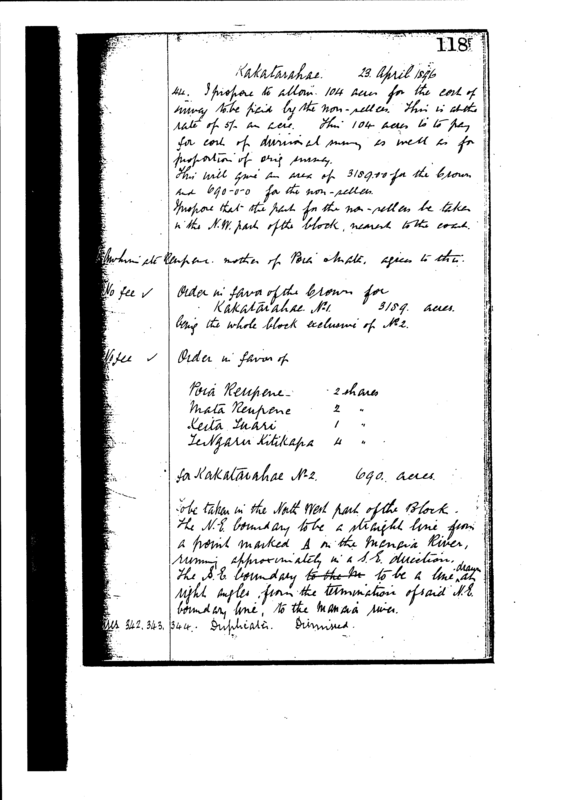 118
Kakatarahae. 23 April 1896
I propose to allow 104 acres for the cost of
survey to be paid by the non-sellers. This is at the
rate of 5/- an acre. This 104 acres is to pay
for cost of divisional survey as well as for
proportion of orig survey.
This will give an area of 3189.0.0 for the Crown
and 690-0-0 for the non-sellers.
I propose that the part for the non-sellers be taken
in the N.W. part of the block, nearest to the coast.
Reupene. mother of Poia Mata, agrees to this.
No fee ✓ Order in favor of the Crown for
Kakatarahae No 1. 3189. acres.
being the whole block exclusive of No 2.
No fee ✓ Order in favor of
Poia Reupene - 2 shares
Mata Reupene 2 "
Keita Tuari 1 "
Te Ngaru Kitikapa 4 "
for Kakatarahae No 2. 690. acres.
To be taken in the North West part of the Block.
The N.E. boundary to be a straight line from
a point marked A on the Manaia River,
running approximately in a S.E. direction.
The S.E boundary to the to be a line drawn at
right angles from the termination of said N.E.
boundary line, to the Manaia river.
342. 343. 344. Duplicates. Dismissed.